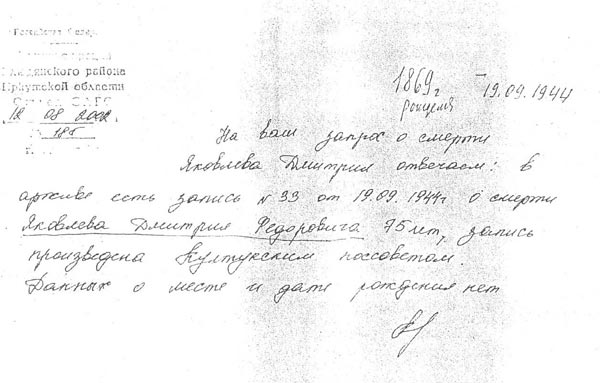 района
Иркутской области
12 08 2002
185
1869г
рождения
19.09.1944
На ваш запрос о смерти
Яковлева Дмитрия отвечаем: в
архиве есть запись №33 от 19.09.1944г о смерти
Яковлева Дмитрия Федоровича 75 лет, запись
произведена Култукским поссоветом.
Данных о месте и дате рождения нет